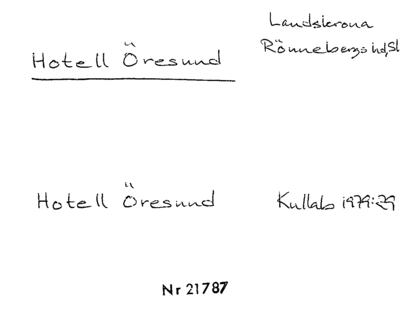 Landskrona
Hotell Öresund
Rönnebergs hd, Sk
Hotell Öresund
Kullab 1979:29
Nr 21787